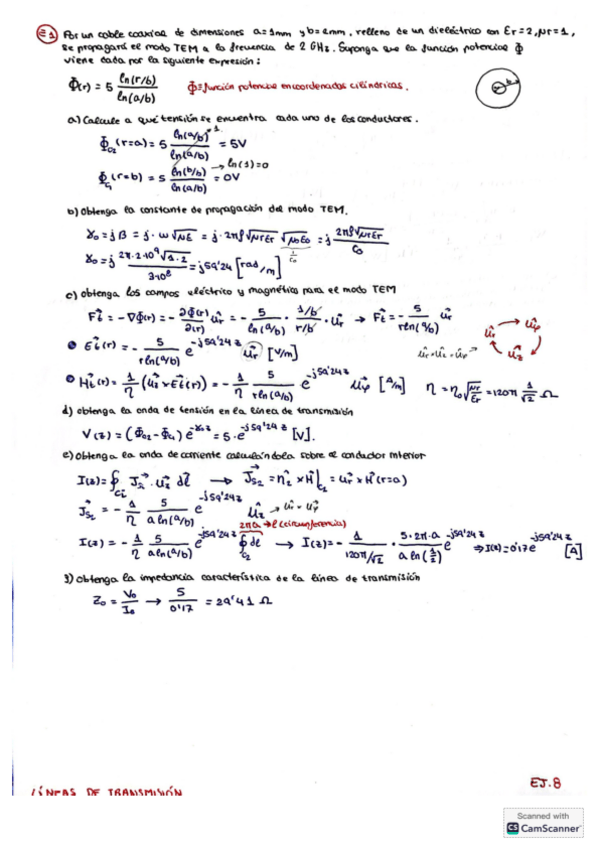 E1 Por un cable coaxial de dimensiones a=1mm y b=2mm, relleno de un dieléctrico con Er=2, μr=1,
se propagará el modo TEM a la frecuencia de 2 GHz. Suponga que la función potencial Φ
viene dada por la siguiente expresión:
Φ(r) = 5 ln(r/b)/ln(a/b)   Φ≡función potencial en coordenadas cilíndricas.
b
a) Calcule a qué tensión se encuentra cada uno de los conductores.
Φc2 (r=a) = 5 ln(a/b)/ln(a/b) = 5V
1
Φc1 (r=b) = 5 ln(b/b)/ln(a/b) = 0V → ln(1)=0
b) Obtenga la constante de propagación del modo TEM.
γo = jβ = j·ω√με = j·2πf√μrεr √μ0ε0 = j 2πf√μrεr / c0
1/c0
γo = j 2π·2·10⁹√1·2 / 3·10⁸ = j59'24 [rad/m]
c) obtenga los campos eléctrico y magnético para el modo TEM
Ft = -∇Φ(r) = - ∂Φ(r)/∂(r) ûr = - 5/ln(a/b) · 1/b / r/b · ûr → Ft = - 5/rln(a/b) ûr
ûr ûφ ûz
• Et(r) = - 5/rln(a/b) e^-j59'24z ûr [V/m]   ûz×ûr=ûφ
• Ht(r) = 1/η (ûz×Et(r)) = - 1/η 5/rln(a/b) e^-j59'24z ûφ [A/m]   η = η0√μr/εr = 120π 1/√2 Ω
d) obtenga la onda de tensión en la línea de transmisión
V(z) = (Φc2 - Φc1) e^-γoz = 5·e^-j59'24z [V].
e) Obtenga la onda de corriente calculándola sobre el conductor interior
I(z) = ∮ci Js·ûz dl → Js2 = n̂2×H|c2 = ûr×H(r=a)
Js2 = - 1/η 5/aln(a/b) e^-j59'24z ûz → ûr×ûφ
2πa → l (circunferencia)
I(z) = - 1/η 5/aln(a/b) e^-j59'24z ∮c2 dl → I(z) = - 1/120π/√2 · 5·2π·a/a ln(1/2) e^-j59'24z ⇒ I(z) = 0'17e^-j59'24z [A]
3) Obtenga la impedancia característica de la línea de transmisión
Z0 = V0/I0 → 5/0'17 = 29'41 Ω
EJ.8
LÍNEAS DE TRANSMISIÓN
Scanned with
CS CamScanner